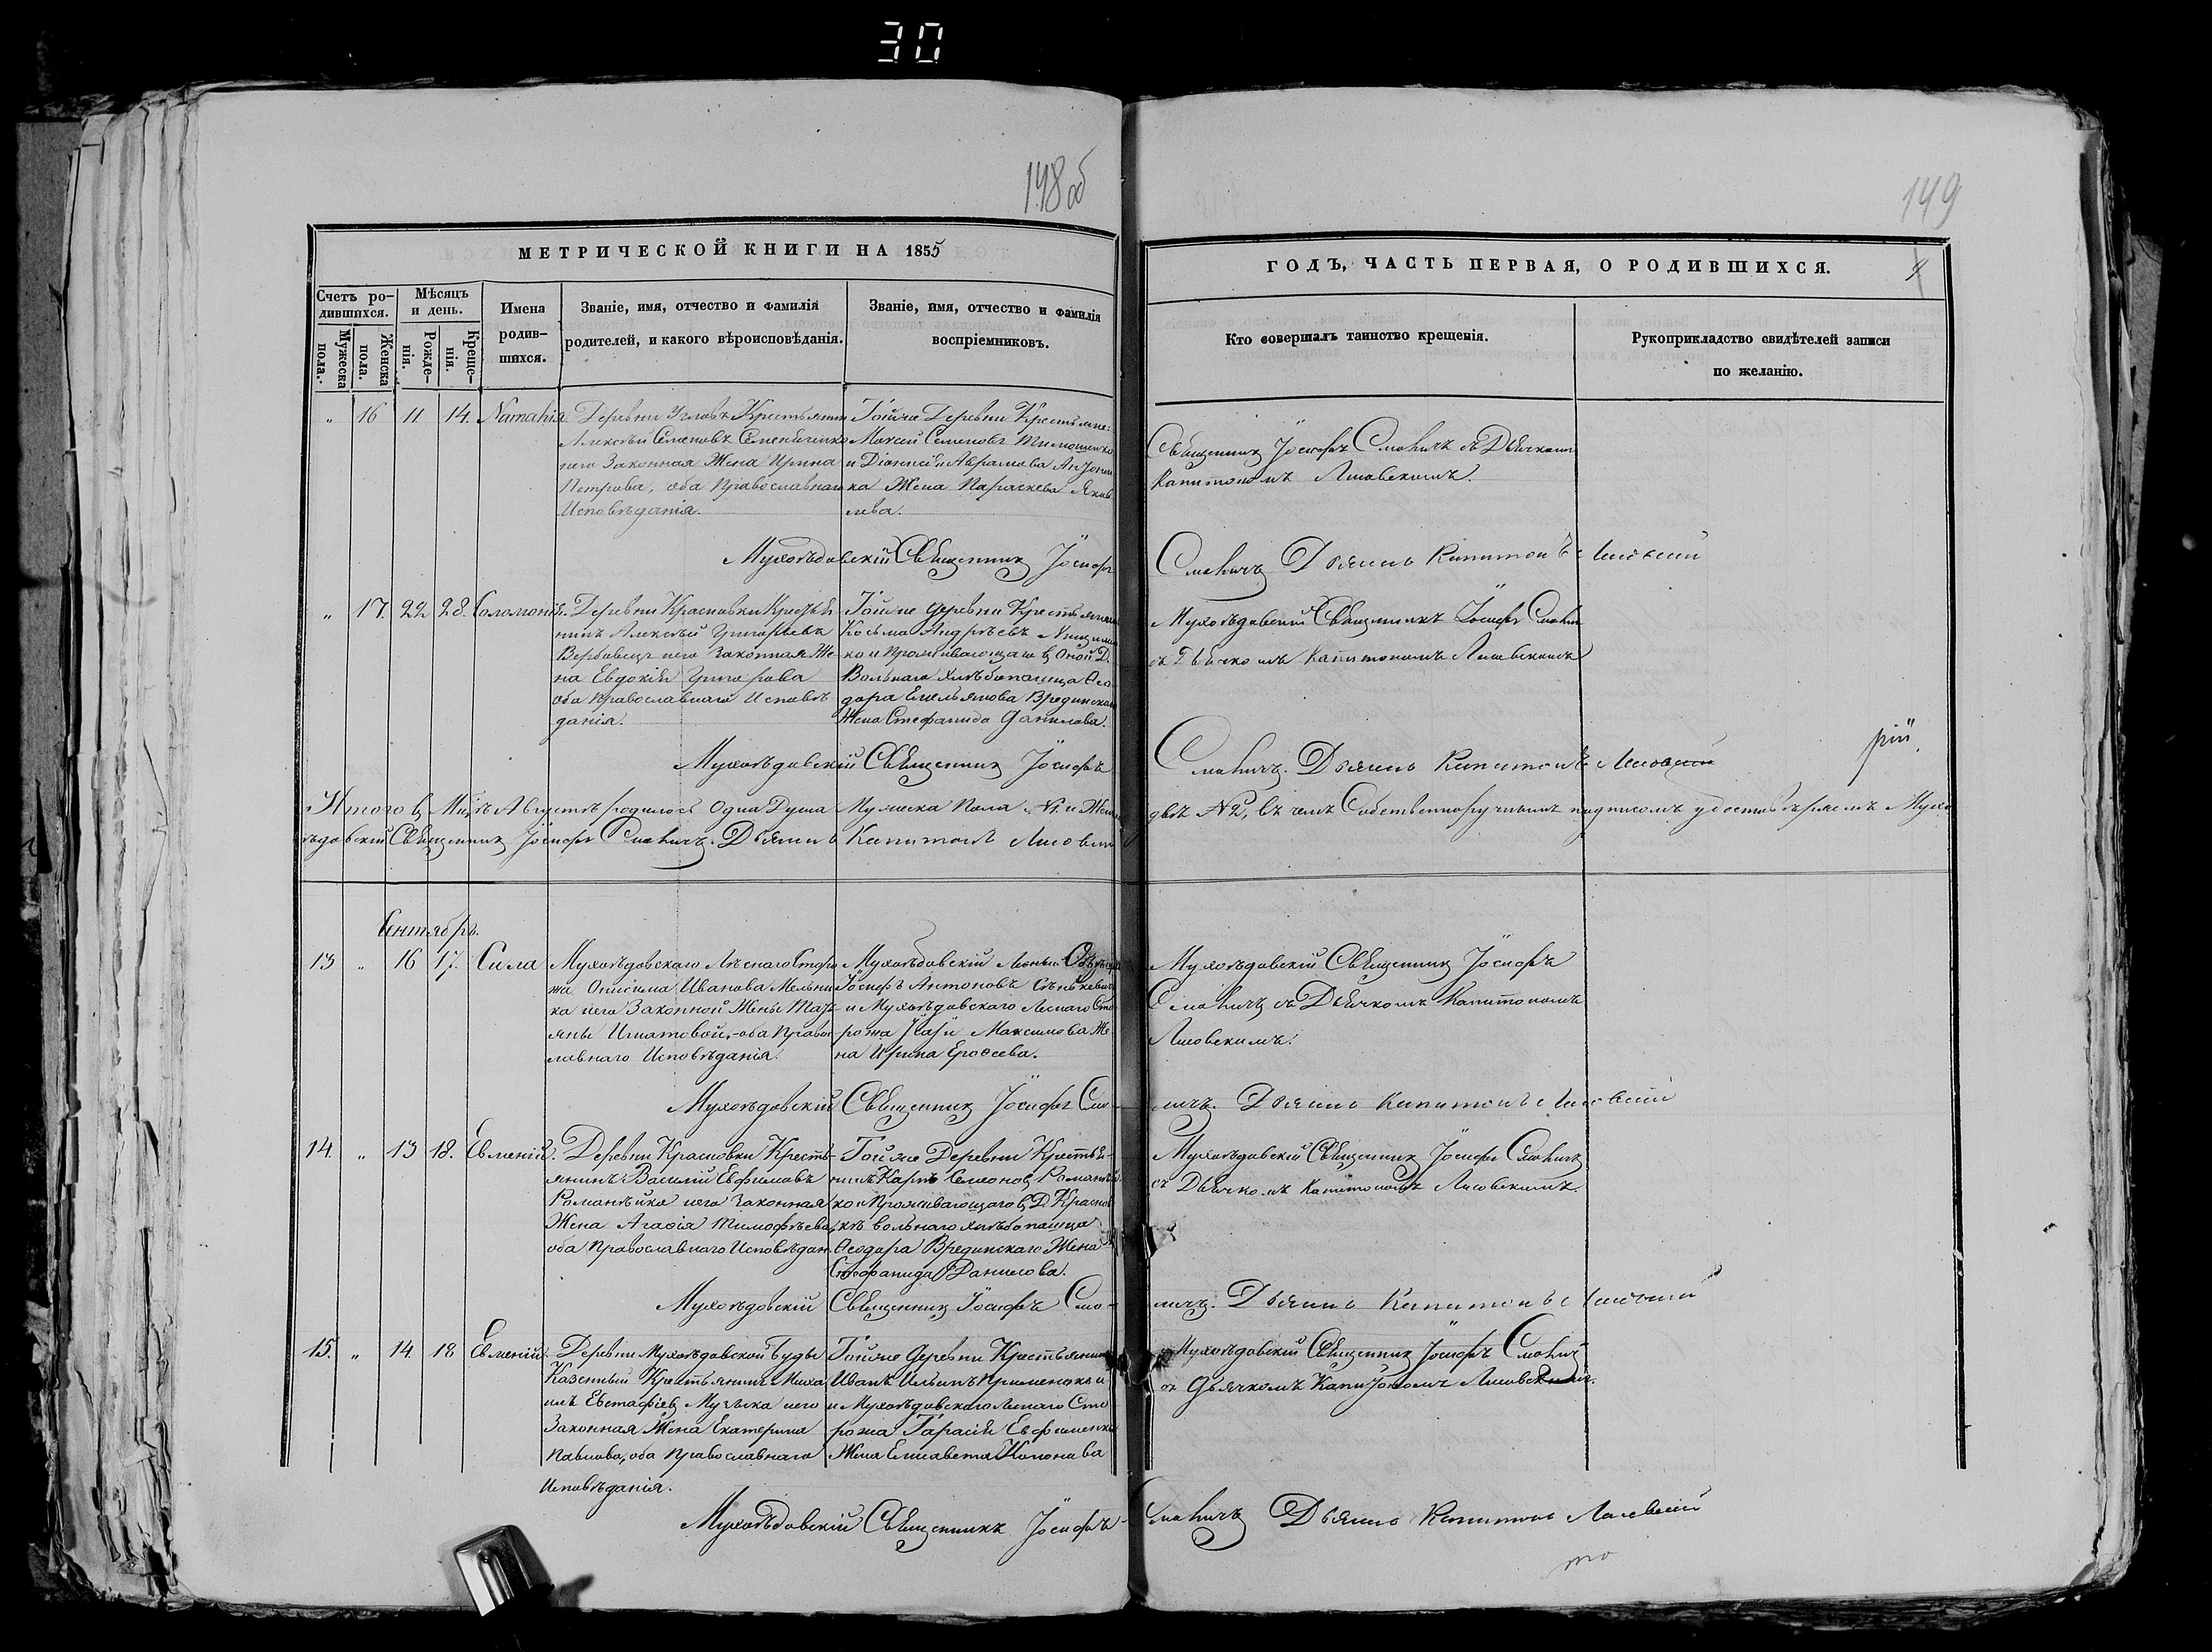 30
148об
149
МЕТРИЧЕСКОЙ КНИГИ НА 1855
ГОДЪ, ЧАСТЬ ПЕРВАЯ, О РОДИВШИХСЯ.
Счетъ ро-
дившихся.
Мужеска
пола.
Женска
пола.
Мѣсяцъ
и день.
Рожде-
нія.
Креще-
нія.
Имена
родив-
шихся.
Званіе, имя, отчество и фамилія
родителей, и какого вѣроисповѣданія.
Званіе, имя, отчество и фамилія
воспріемниковъ.
Кто совершалъ таинство крещенія.
Рукоприкладство свидѣтелей записи
по желанію.
„ 16 11 14. Наталія.
Деревни Крестьянин
Алексѣй Семеновъ
него Законная Жена Ирина
Петрова, оба Православнаго
Исповѣданія.
Тойже Деревни Крестьяне:
Моисей Семеновъ Тимошенко
и Діонисія Аврамова Антонен
ка Жена Параскева Яков
лева.
Священникъ Іосифъ Смоличъ съ Дьячкомъ
Капитономъ Лисовскимъ.
Мухоѣдовскій Священникъ Іосифъ
Смоличъ Дьячекъ Капитонъ Лисовскій
„ 17. 22 28. Соломонія.
Деревни Красновки Крестья
нинъ Алексѣй Григорьевъ
Вербовецъ него Законная Же
на Евдокія Григорова
оба Православнаго Исповѣ
данія.
Тойже деревни Крестьянинъ
Козьма Андрѣевъ
ко и Проживающаго въ Оной Д.
Вольнаго хлѣбопашца Ѳео
дора Емельянова Врединскаго
Жена Стефанида Данилова.
Мухоѣдовскій Священникъ Іосифъ Смолич
съ Дьячкомъ Капитономъ Лисовскимъ
Мухоѣдовскій Священникъ Іосифъ
Смоличъ. Дьячекъ Капитонъ Лисовскій
рій
Итого въ Мцѣ Августѣ родилось Одна Душа Мужеска Пола №1. и Жен
двѣ №2, въ чемъ Собственноручнымъ подписомъ удостовѣряемъ Мухо
ѣдовскій Священникъ Іосифъ Смоличъ. Дьячекъ Капитонъ Лисовскій
Сентябрь.
13 „ 16 17. Сила
Мухоѣдовскаго Лѣснаго Сторо
жа Онисима Иванова Мельни
ка него Законной Жены Тать
яны Игнатовой, оба Правос
лавнаго Исповѣданія.
Мухоѣдовскій Лѣсный
Іосифъ Антоновъ
и Мухоѣдовскаго Леснаго Сто
рожа Максимова Же
на Ирина Ероѳеева.
Мухоѣдовскій Священникъ Іосифъ
Смоличъ съ Дьячкомъ Капитономъ
Лисовскимъ.
Мухоѣдовскій Священникъ Іосифъ Смо-
личъ. Дьячекъ Капитонъ Лисовскій
14. „ 13 18. Евменій.
Деревни Красновки Кресть-
янинъ Василій Евфимовъ
Романѣйко него Законная
Жена Агафія Тимофѣева,
оба Православнаго Исповѣдан.
Тойже Деревни Крестья-
нинъ Карпъ Семеновъ Романѣй
ко и Проживающаго въ Д. Краснов
кѣ вольнаго хлѣбопашца
Ѳеодора Врединскаго Жена
Стефанида Данилова.
Мухоѣдовскій Священникъ Іосифъ Смоличъ
съ Дьячкомъ Капитономъ Лисовскимъ.
Мухоѣдовскій Священникъ Іосифъ Смо-
личъ. Дьячекъ Капитонъ Лисовскій
15. „ 14. 18 Евменій.
Деревни Мухоѣдовской Буды
Казенный Крестьянинъ Миха
илъ Евстафіевъ него
Законная Жена Екатерина
Павлова, оба Православнаго
Исповѣданія.
Тойже Деревни Крестьянинъ
Иванъ Ильинъ
и Мухоѣдовскаго Леснаго Сто
рожа Тарасія Евфименка
Жена Елисавета Кононова
Мухоѣдовскій Священникъ Іосифъ Смолич
съ Дьячкомъ Капитономъ Лисовскимъ.
Мухоѣдовскій Священникъ Іосифъ
Смоличъ Дьячекъ Капитонъ Лисовскій
то